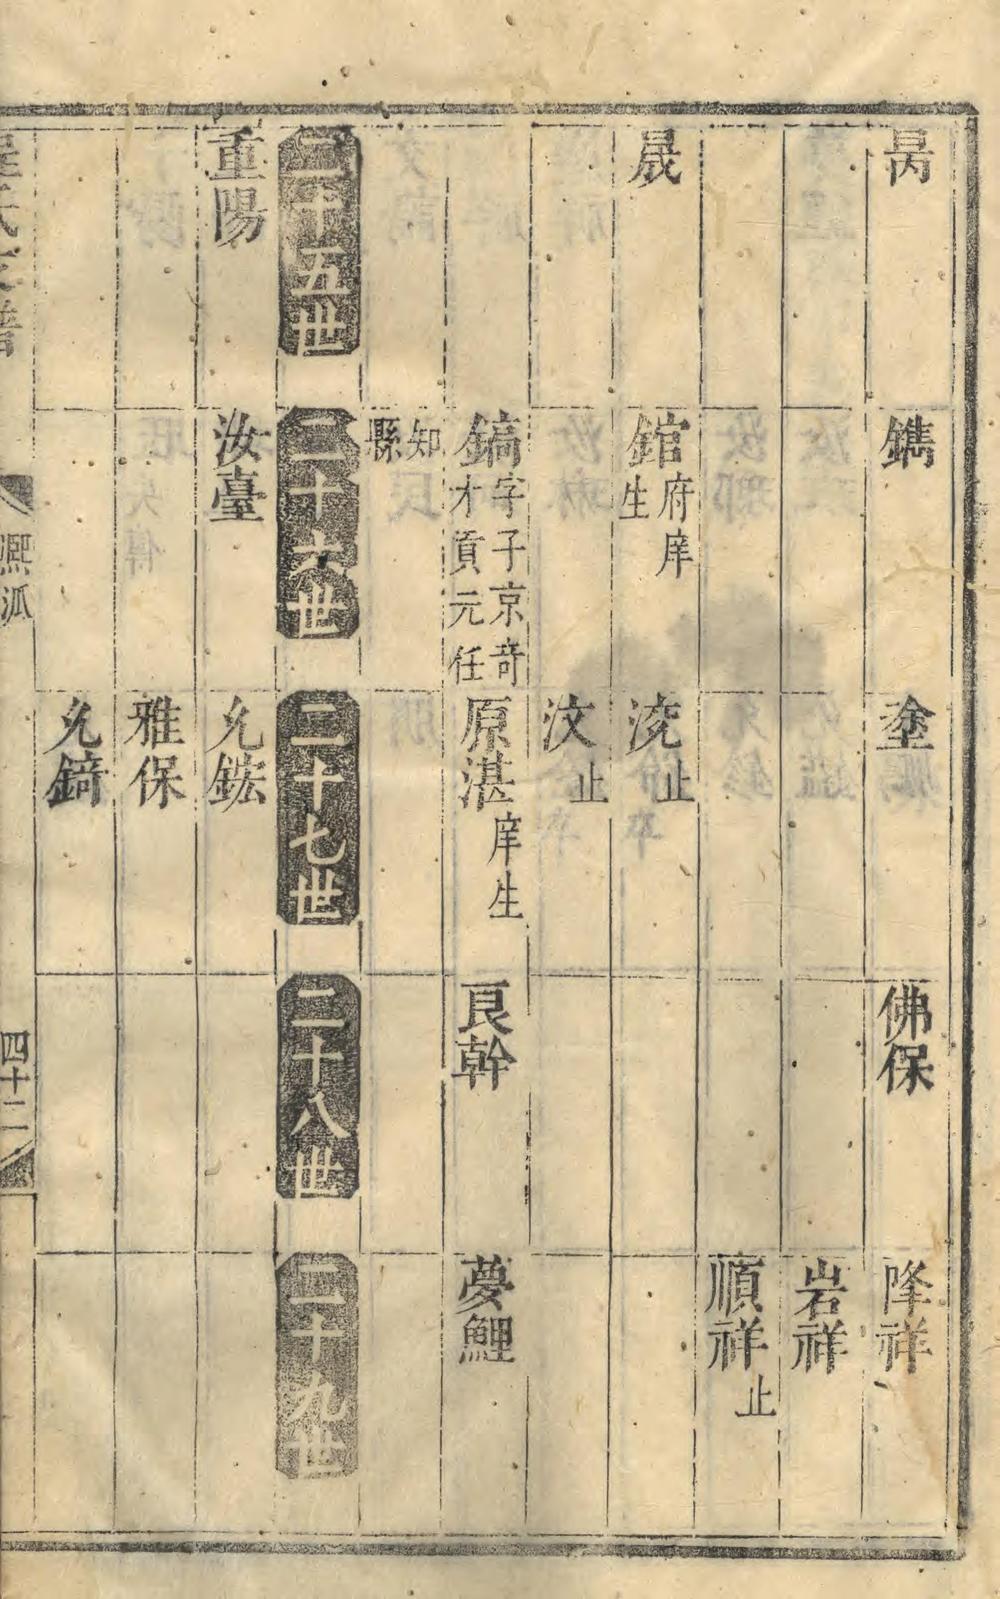 昺
鐫
塗
佛保
隆祥
岩祥
順祥 止
晟
錧 府庠
生
淩 止
汶 止
鎬 字子京奇
才貢元任
知
縣
原湛 庠生
良幹
夢鯉
二十五世
二十六世
二十七世
二十八世
二十九世
重陽
汝臺
允鋐
雅保
允錡
四十二